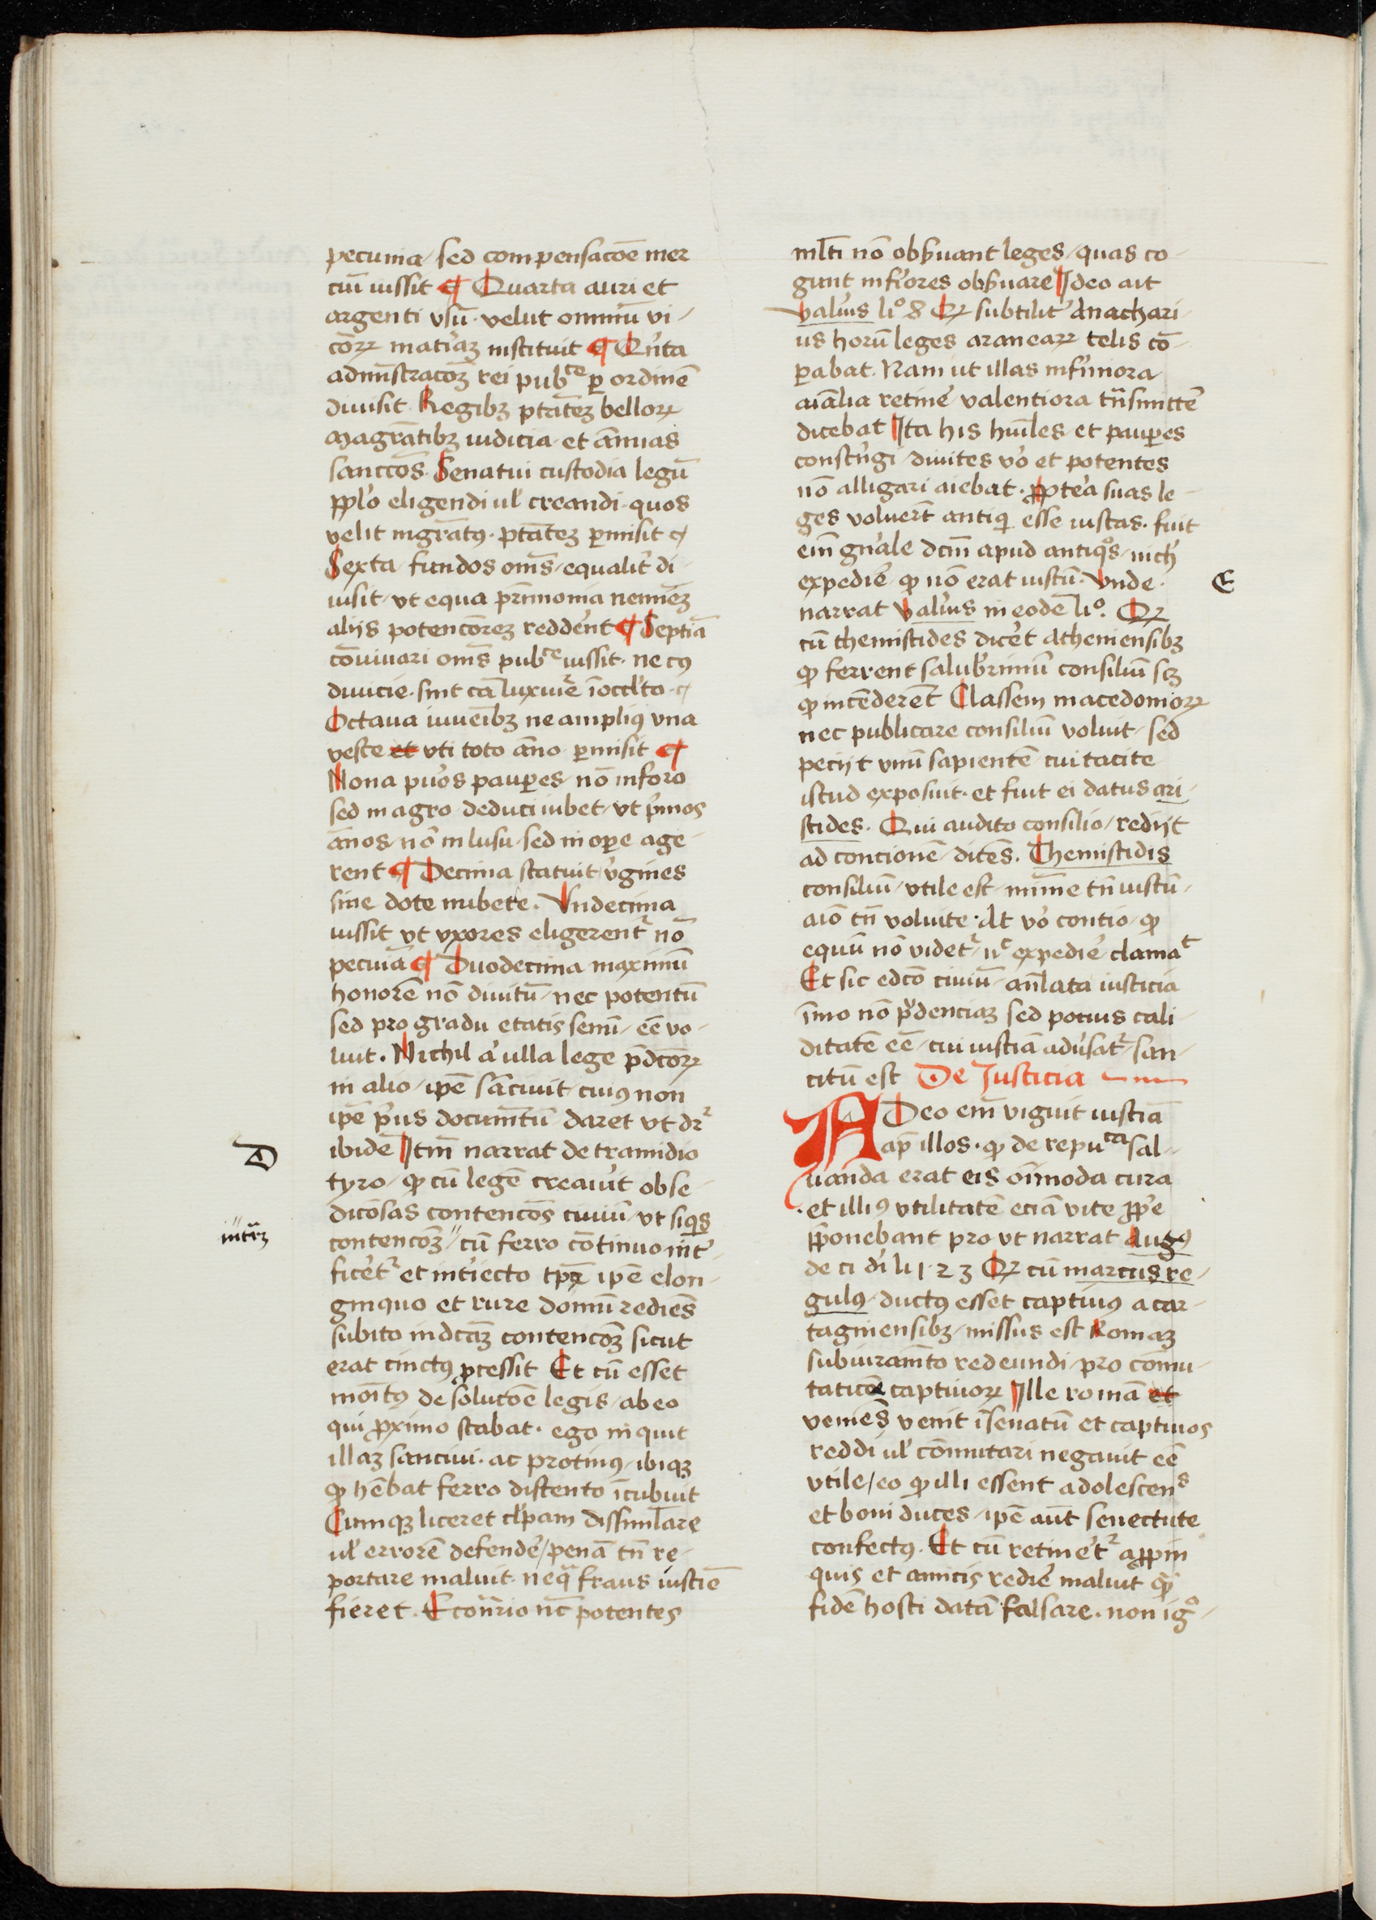 pecunia / sed compensacōe mer
ciū iussit ¶ Quarta auri et
argenti vsū · velut omniū vi-
cōꝝ matīaꝫ instituit ¶ Qīta
admīstracōꝫ rei pubᶜᵉ ꝑ ordinē
diuisit Regibꝫ ptātēꝫ belloꝝ
magrātibꝫ iudicia · et ānuas
sanccōs · Senatui custodia legū
pplo eligendi ul' creandi · quos
velit mgratꝰ · ptātēꝫ ꝑmisit ¶
Sexta · fundos om̄s · equalit' di-
uisit · vt equa pr̄imonia neminēꝫ
alijs potencōreꝫ redderēt ¶ Septīa
cōuiuari om̄s pubᶜᵉ iussit · ne cꝰ
diuicie · sint cā luxurie ī occl'to · ¶
Octaua iuueībꝫ ne ampliꝰ vna
veste et vti toto āno ꝑmisit ¶
Nona pu'os pauꝑes · nō in foro
sed in agro · deduci iubet · vt p'mos
ānos · nō in lusu · sed in oꝑe age-
rent ¶ Decima statuit · v'gines
sine dote nubere · Vndecima
iussit vt vxores eligerent' nō
pecuīa ¶ Duodecima maximū
honorē nō diuitū · nec potentū
sed pro gradu etatis senū · eē vo-
luit · Nichil a' ulla lege p̄dcōꝝ
in alio · ipē sanciuit · cuiꝰ non
ipē p'us documētū daret vt dr'
D
ibidē Itm̄ narrat de tramidio
tyro · ꝙ cū legē creauit ob se-
dicōsas contencōs ciuiū · vt siqͥs
contencōꝫ '' cū ferro cōtinuo int'
'' intr̄ꝫ
ficet' et int'iecto tpē ipē e lon-
ginquo et rure domū rediēs
subito in dcāꝫ contencōꝫ sicut
erat cinctꝰ ꝓcessit Et cū esset
monitꝰ de solucōe legis · ab eo
qui ꝓximo stabat · ego inquit
illaꝫ sanciui · ac protinꝰ · ibiqꝫ
ꝙ hēbat ferro districto īcubuit
Cumqꝫ liceret cl'pam dissimlare
ul' errorē defende' / penā tn̄ re-
portare maluit · neqꝫ fraus iusticie
fieret · Econ'rio nc̄ potentes
ml'ti nō obs'uant leges · quas co-
gunt inf'iores obs'uare Ideo ait
Val'ius li° 8 Qꝝ subtilit' Anachari-
us horū leges araneaꝝ telis cō-
ꝑabat · Nam ut illas infirmiora
aīalia retine' valentiora trn̄smitte'
dicebat Ita his huīles · et pauꝑes
constrīgi · diuites v'o et potentes
nō alligari aiebat · ꝓptea suas le-
ges voluert̄ antiqi esse iustas · fuit
em̄ gn'ale dcm̄ apud antiqͦs · nich'
expedie' ꝙ nō erat iustū · Vnde ·
E
narrat Val'ius in eodē li° · Qꝝ
cū themistides dicēt Atheniensibꝫ
ꝙ ferrent salub'rimū consiliū scꝫ
ꝙ incenderēt Classem macedonioꝝ
nec publicare consiliū voluit · sed
pecijt vnū sapientē cui tacite
istud exposuit · et fuit ei datus ari-
stides · Qui audito consilio / redijt
ad concionē · dicēs · Themistidis
consiliū · vtile est · mīme tn̄ iustū ·
aiō tn̄ voluite · At v'o contio · ꝙ
equū nō videt' · nᶜ expedie' clamaᵗ
Et sic edcō ciuiū · anl'ata iusticia
ī mo nō p̄denciaꝫ sed pocius cali-
ditatē eē · cui iustīa adu'sat' · san-
citū est De Justicia
ADeo em̄ viguit iustīa
ap̄ illos · ꝙ de repuᶜᵃ sal-
uanda erat eis oīmoda cura
et illiꝰ vtilitatē eciā vite ꝓpe
p̄ponebant pro vt narrat Augꝰ
de ci di' li 1 · 23 Qꝝ cū marcus re-
gulꝰ · ductꝰ esset captiuus a car-
taginensibꝫ / missus est Romaꝫ
sub iuramēto redeundi · pro cōmu-
tatione captiuoꝝ Ille romā et
veniēs venit ī senatū et captiuos
reddi ul' cōmutari negauit eē
vtile / eo ꝙ illi essent adolescenˢ
et boni duces · ipē aūt senectute
confectꝰ · Et cū retinet' a ꝓpin
quis et amicis redire maluit qͣ
fidē hosti datā falsare · non igͦ-